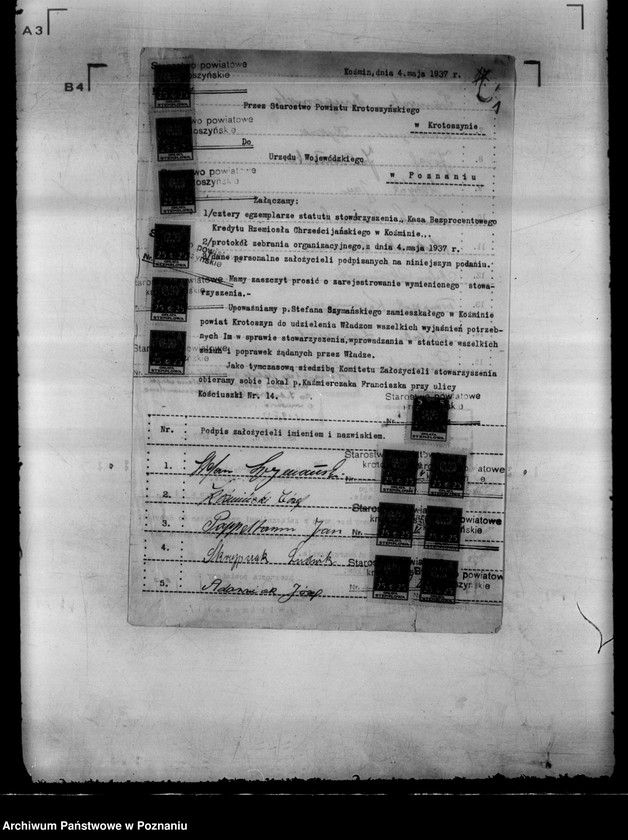 A3
B4
Koźmin, dnia 4.maja 1937 r.
1
Przez Starostwo Powiatu Krotoszyńskiego
w Krotoszynie
Do
Urzędu Wojewódzkiego
w Poznaniu
Załączamy:
1/cztery egzemplarze statutu stowarzyszenia,, Kasa Bezprocentowego
Kredytu Rzemiosła Chrześcijańskiego w Koźminie,,.
2/protokół zebrania organizacyjnego,z dnia 4.maja 1937 r.
dane personalne założycieli podpisanych na niniejszym podaniu.
Mamy zaszczyt prosić o zarejestrowanie wymienionego stowa-
rzyszenia.-
Upoważniamy p.Stefana Szymańskiego zamieszkałego w Koźminie
powiat Krotoszyn do udzielenia Władzom wszelkich wyjaśnień potrzeb-
nych Im w sprawie stowarzyszenia,wprowadzania w statucie wszelkich
zmian i poprawek żądanych przez Władze.
Jako tymczasową siedzibę Komitetu Założycieli stowarzyszenia
obieramy sobie lokal p.Kaźmierczaka Franciszka przy ulicy
Kościuszki Nr. 14.
Starostwo powiatowe
Nr. Podpis założycieli imieniem i nazwiskiem.
1. Stefan Szymański
2.
3. Poppelbaum Jan
4. Skrzypczak Ludwik
5. Adamczak Józef
Archiwum Państwowe w Poznaniu